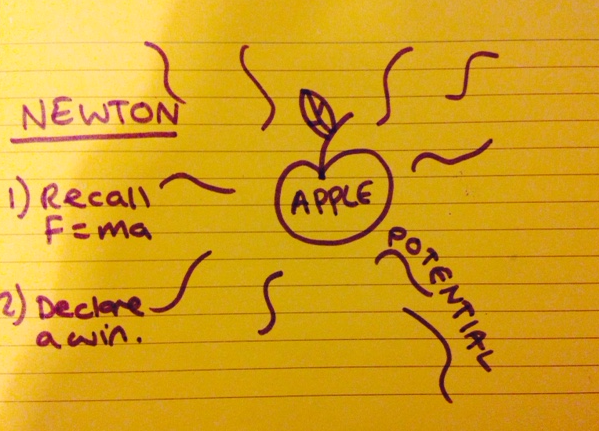 NEWTON
1) Recall
F=ma
2) Declare
a win.
APPLE
POTENTIAL